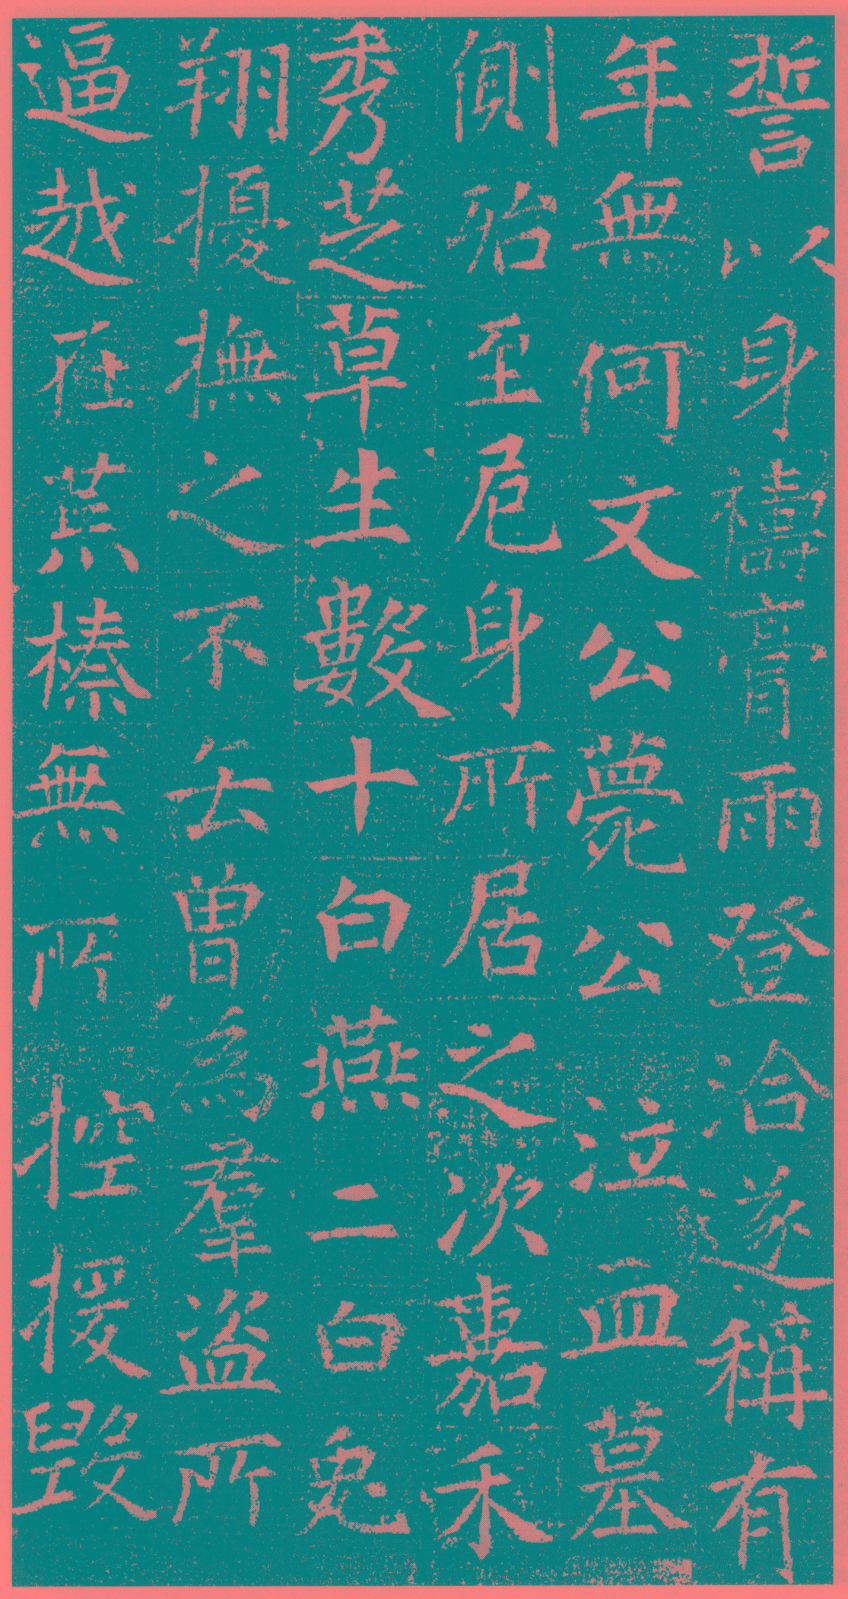 誓以身禱膏雨登洽遂稱有
年無何文公薨公泣血墓
側殆至危身所居之次嘉禾
秀芝草生數十白燕二白兔
翔擾撫之不去曾為羣盜所
逼越在荒榛無所控援毀